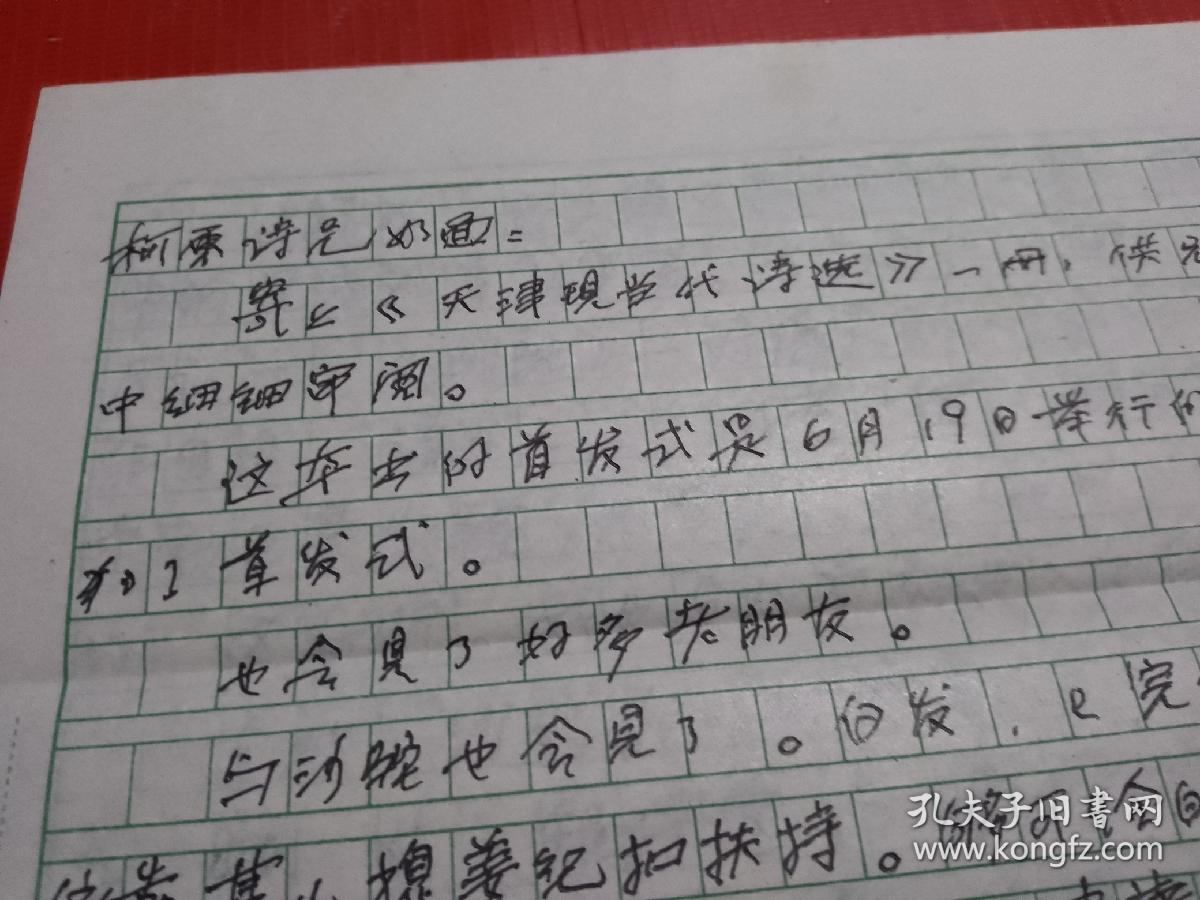 柯原诗兄如面:
寄上《天津现当代诗选》一册,供
中细细审阅。
这本书的首发式是6月19日举行的
了首发式。
也会见了好多老朋友。
与沙驼也会见了。白发,已完
其小姨姜纪扣扶持。
孔夫子旧书网
www.kongfz.com